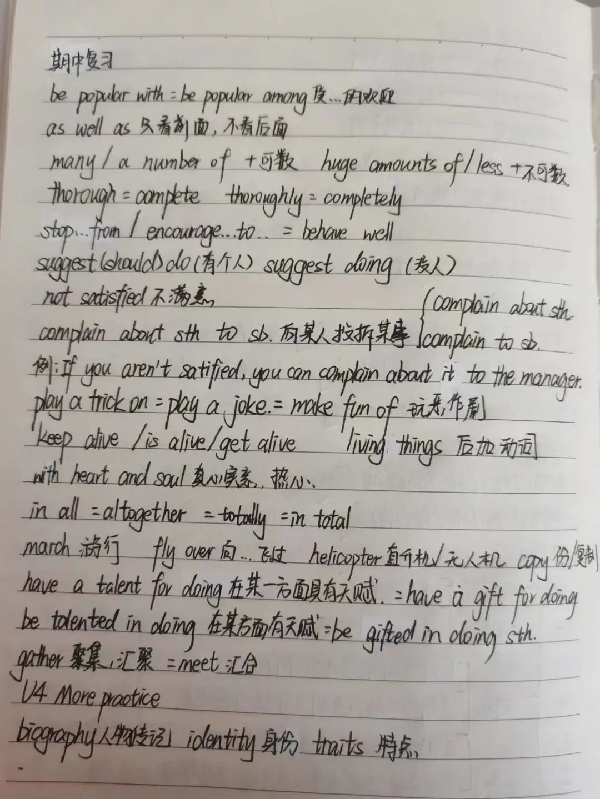 期中复习
be popular with = be popular among 受...的欢迎
as well as 只看前面,不看后面
many / a number of +可数 huge amounts of / less +不可数
thorough = complete thoroughly = completely
stop...from / encourage...to.. = behave well
suggest (should) do (有个人) suggest doing (没人)
not satisfied 不满意
complain about sth
complain about sth to sb. 向某人投拆某事
complain to sb.
例: If you aren't satified, you can complain about it to the manager.
play a trick on = play a joke. = make fun of 玩恶作剧
keep alive / is alive / get alive living things 后加动词
with heart and soul 真心实意, 热心
in all = altogether = totally = in total
march 游行 fly over 向...飞过 helicopter 直升机 / 无人机 copy 份/复制
have a talent for doing 在某一方面具有天赋. = have a gift for doing
be talented in doing 在某方面有天赋 = be gifted in doing sth.
gather 聚集, 汇聚 = meet 汇合
U4 More practice
biography 人物传记 identity 身份 traits 特点